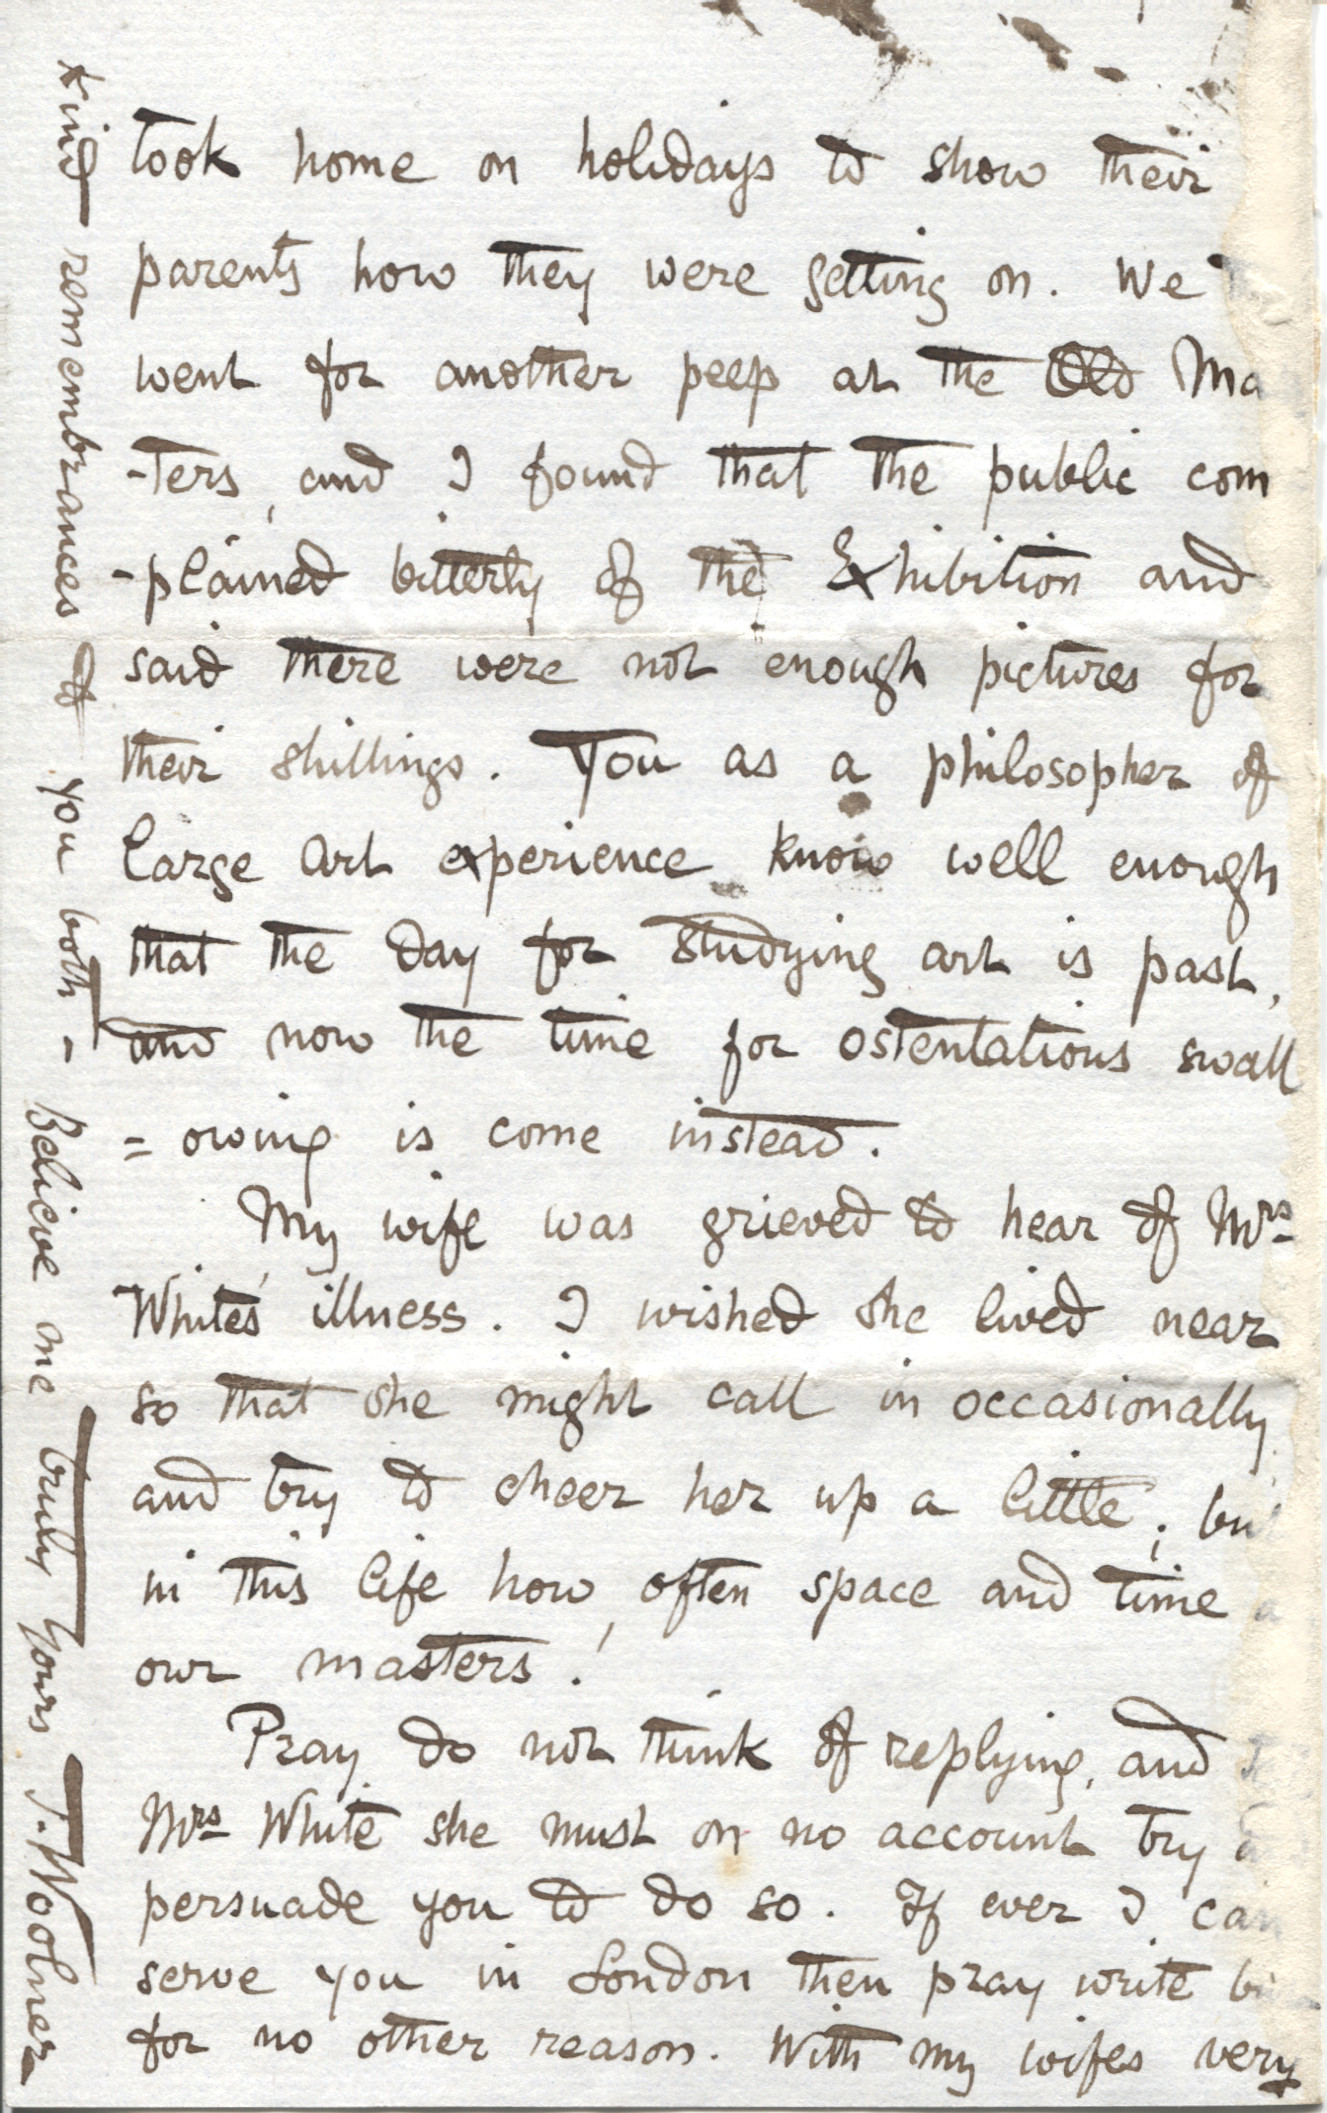 took home on holidays to show their
parents how they were getting on. We
went for another peep at the Old Ma
-ters, and I found that the public com
-plained bitterly of the Exhibition and
said there were not enough pictures for
their shillings. You as a philosopher of
large art experience know well enough
that the day for studying art is past,
and now the time for ostentatious swall
= owing is come instead.
My wife was grieved to hear of Mrs
White's illness. I wished she lived near
so that she might call in occasionally
and try to cheer her up a little; but
in this life how, often space and time
our masters!
Pray do not think of replying, and
Mrs White she must on no account try
persuade you to do so. If ever I can
serve you in London then pray write
for no other reason. With my wifes very
kind remembrances to you both - Believe me truly yours T. Woolner